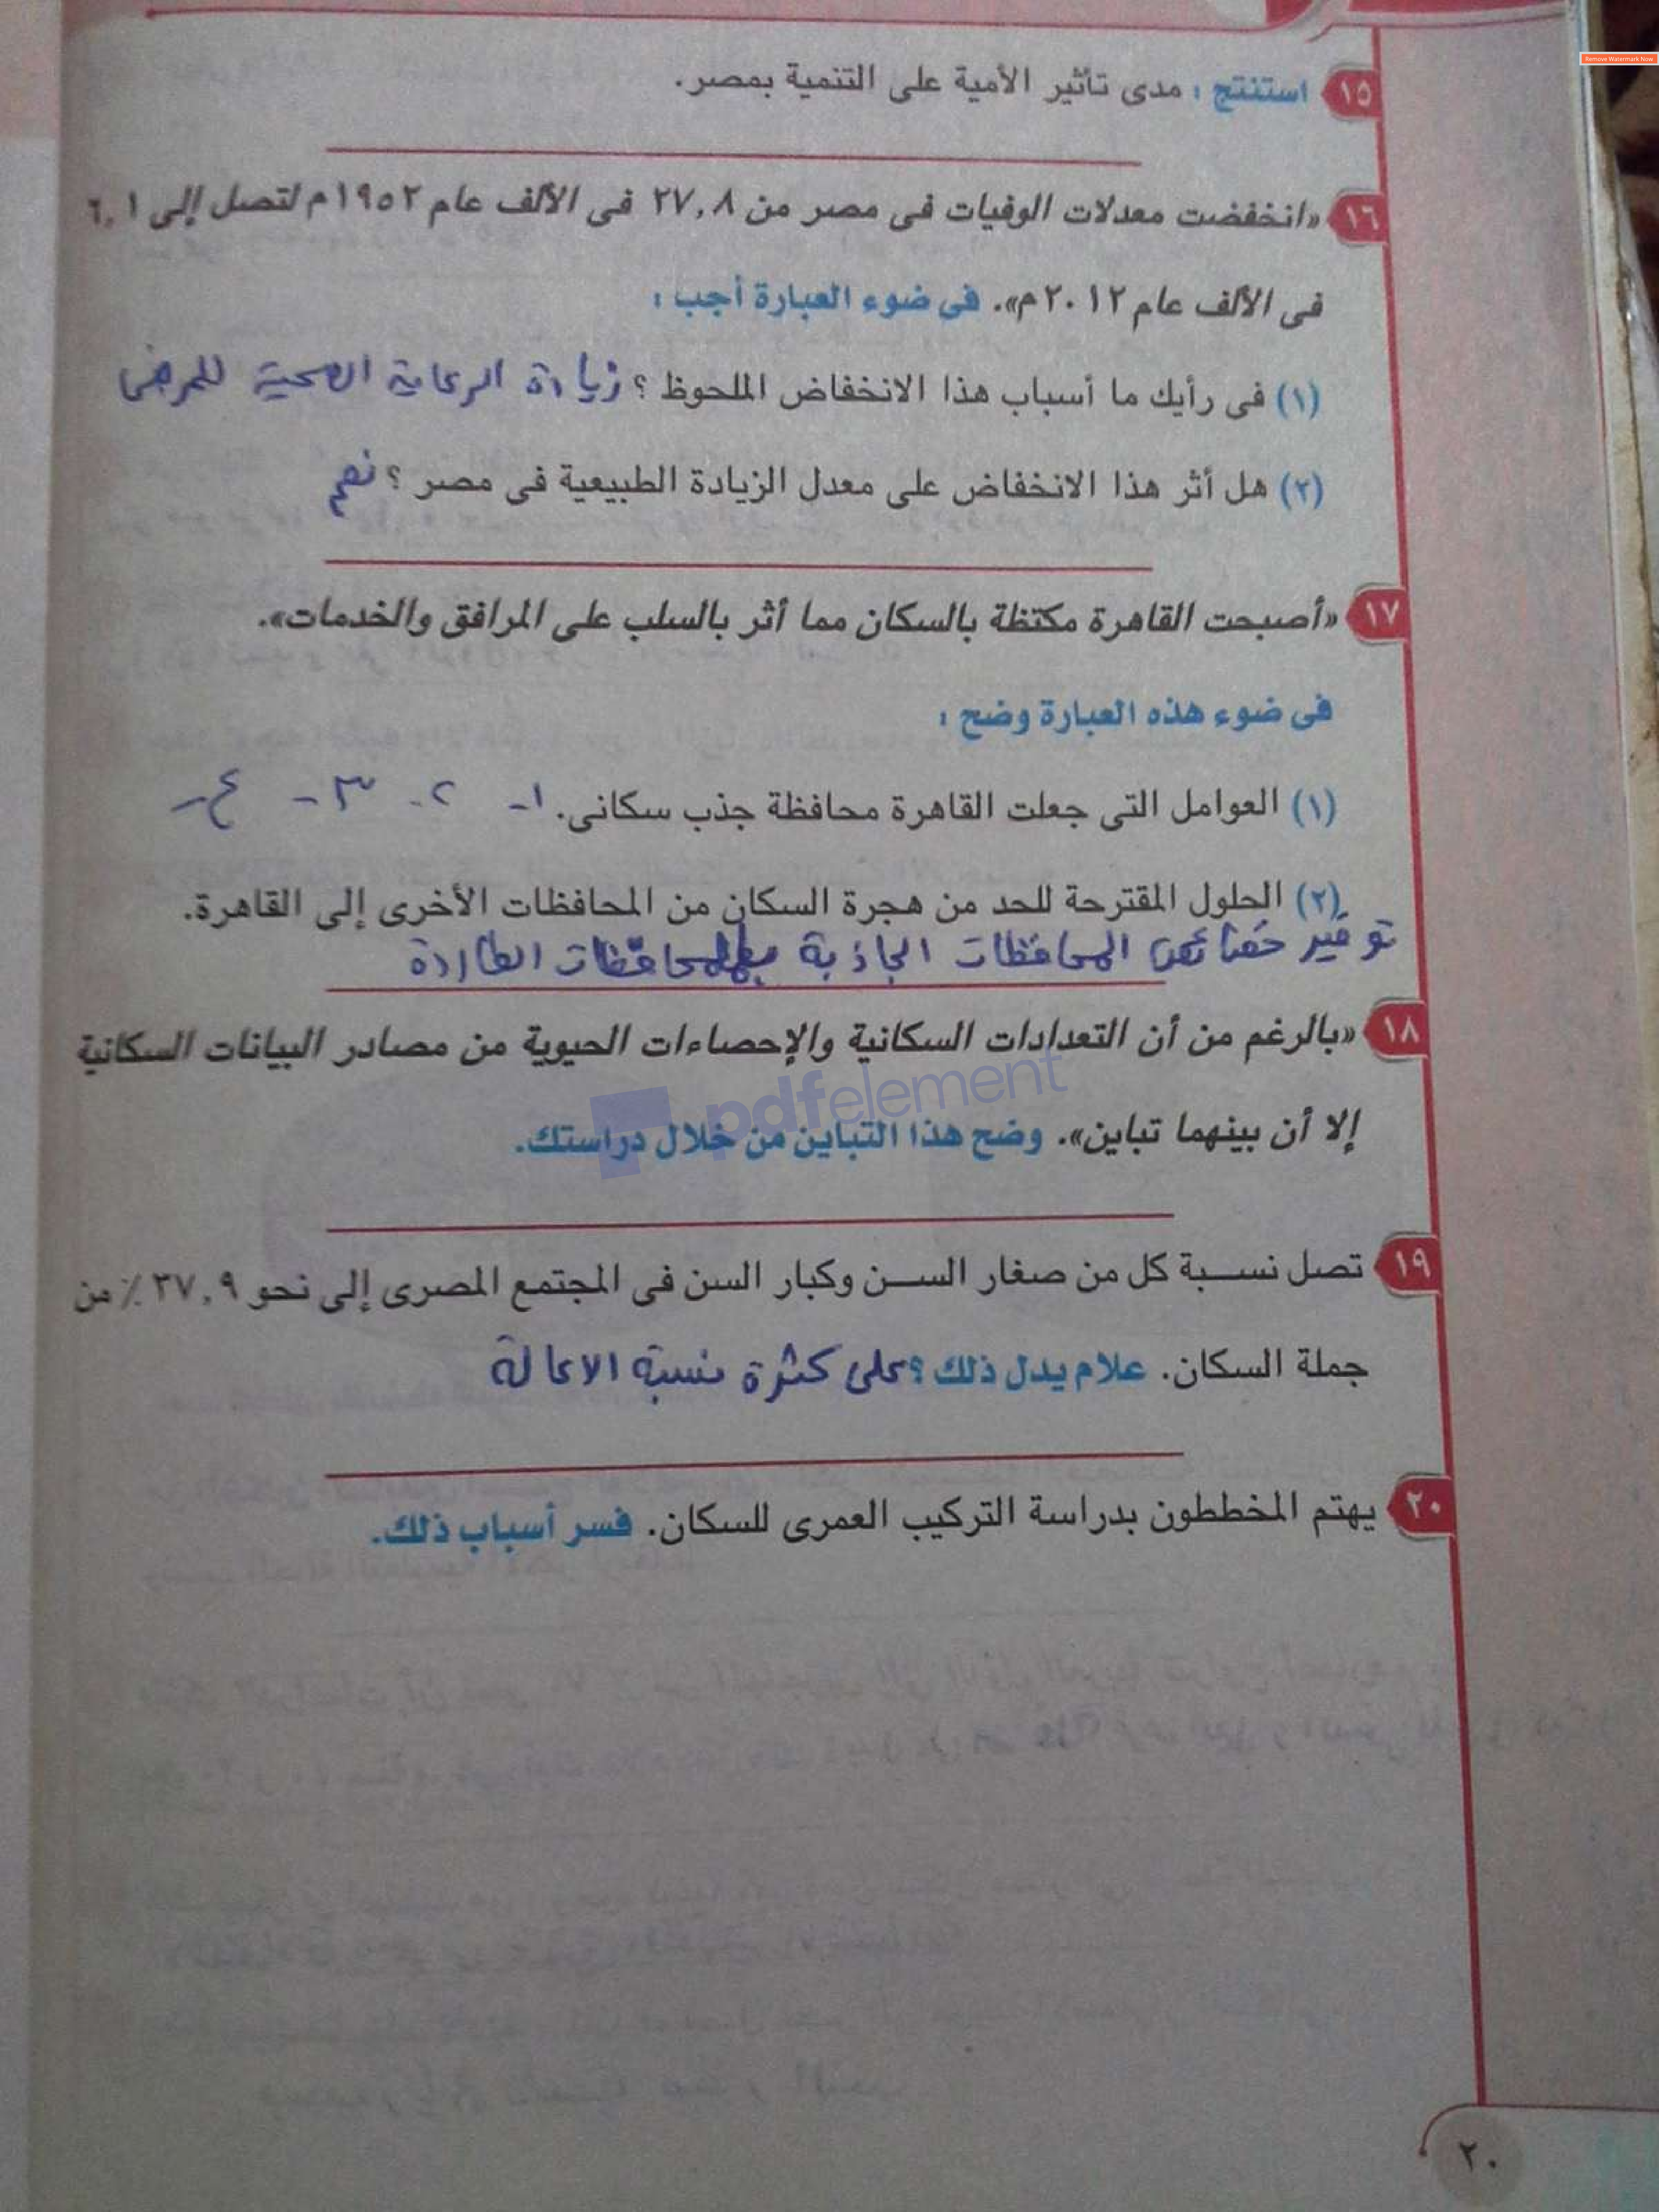 Remove Watermark Now
١٥ استنتج : مدى تأثير الأمية على التنمية بمصر.
١٦ «انخفضت معدلات الوفيات فى مصر من ٢٧,٨ فى الألف عام ١٩٥٢م لتصل إلى ٦,١
فى الألف عام ٢٠١٢م». فى ضوء العبارة أجب :
(١) فى رأيك ما أسباب هذا الانخفاض الملحوظ ؟ زيادة الرعاية الصحية للمرضى
(٢) هل أثر هذا الانخفاض على معدل الزيادة الطبيعية فى مصر ؟ نعم
١٧ «أصبحت القاهرة مكتظة بالسكان مما أثر بالسلب على المرافق والخدمات».
فى ضوء هذه العبارة وضح :
(١) العوامل التى جعلت القاهرة محافظة جذب سكانى. ١- ٢- ٣- ٤-
(٢) الحلول المقترحة للحد من هجرة السكان من المحافظات الأخرى إلى القاهرة.
توفير خصائص المحافظات الجاذبة بالمحافظات الطاردة
١٨ «بالرغم من أن التعدادات السكانية والإحصاءات الحيوية من مصادر البيانات السكانية
إلا أن بينهما تباين». وضح هذا التباين من خلال دراستك.
pdfelement
١٩ تصل نسبة كل من صغار السن وكبار السن فى المجتمع المصرى إلى نحو ٣٧,٩ ٪ من
جملة السكان. علام يدل ذلك ؟ على كثرة نسبة الاعالة
٢٠ يهتم المخططون بدراسة التركيب العمرى للسكان. فسر أسباب ذلك.
٢٠